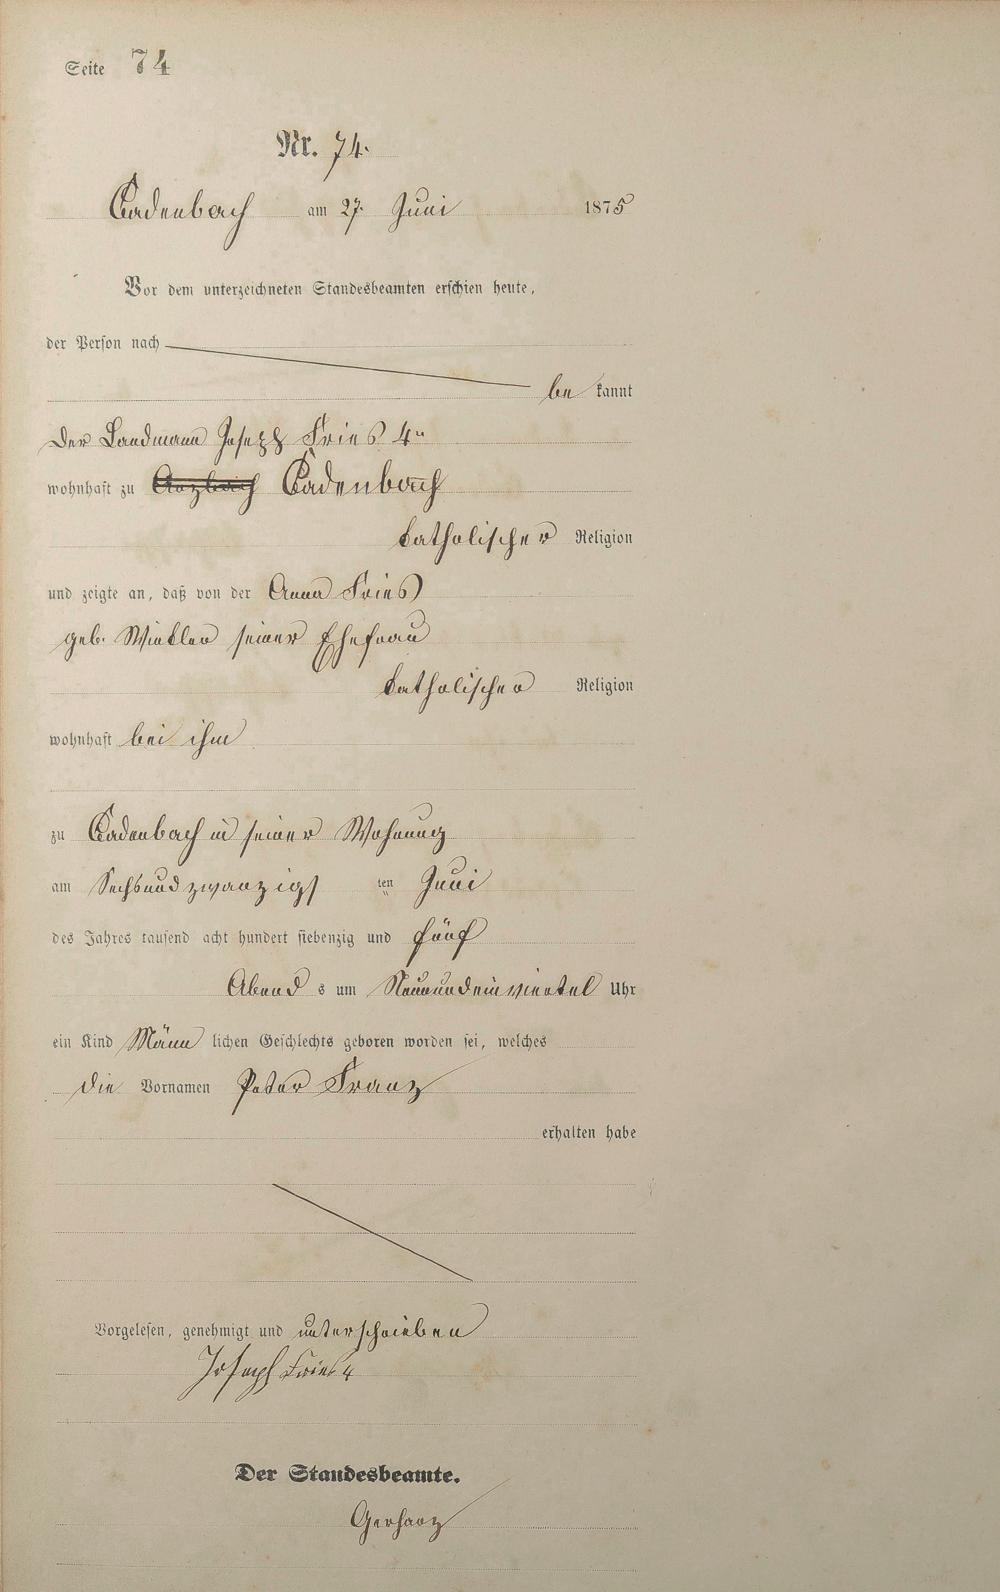 Seite 74
Nr. 74.
Cadenbach am 27. Juni 1875
Vor dem unterzeichneten Standesbeamten erschien heute,
der Person nach
be kannt
der Landmann Joseph Fries 4r
wohnhaft zu Cadenbach
katholischer Religion
und zeigte an, daß von der Anna Fries
geb. Winkler seiner Ehefrau
katholischer Religion
wohnhaft bei ihm
zu Cadenbach in seiner Wohnung
am Sechsundzwanzigs ten Juni
des Jahres tausend acht hundert siebenzig und fünf
Abend s um Neunundeinviertel Uhr
ein Kind Männ lichen Geschlechts geboren worden sei, welches
die Vornamen Peter Franz
erhalten habe
Vorgelesen, genehmigt und unterschrieben
Joseph Fries 4
Der Standesbeamte.
Gerharz